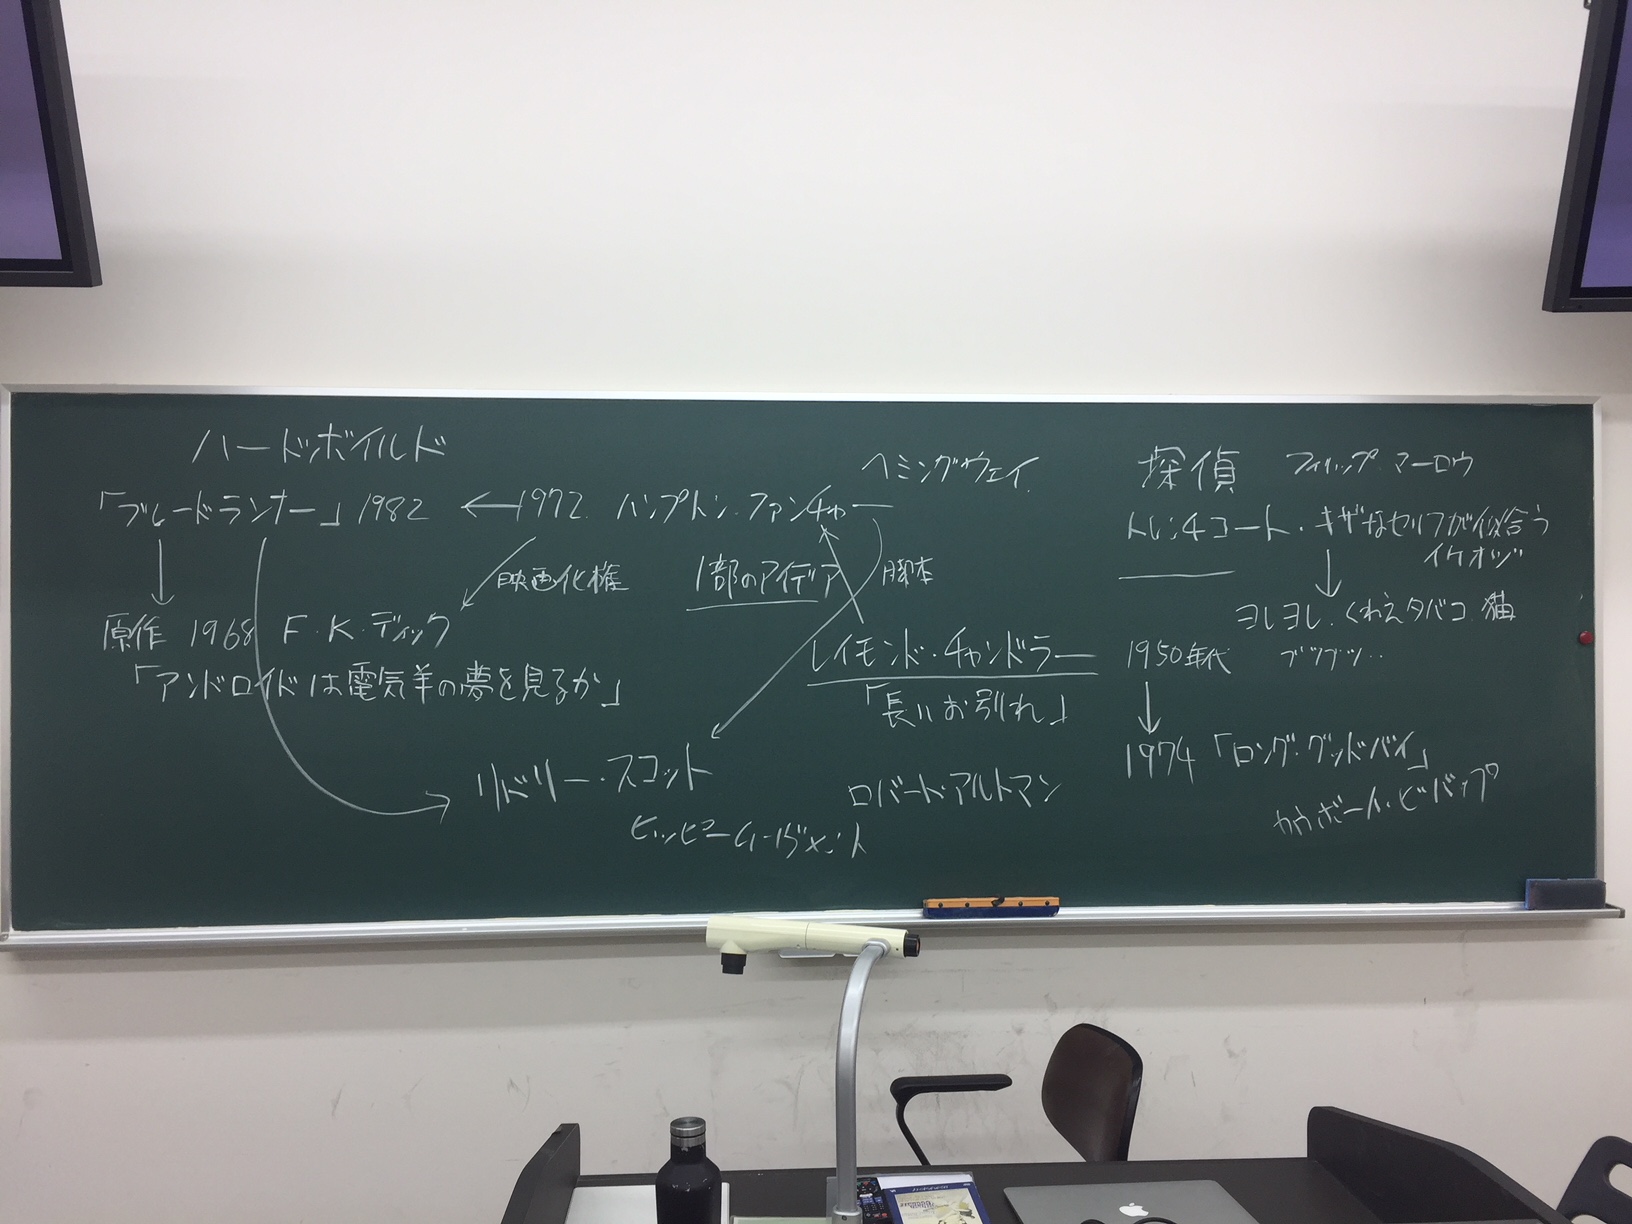 ハードボイルド
「ブレードランナー」1982 ← 1972. ハンプトン・ファンチャー
ヘミングウェイ.
映画化権
1部のアイデア
脚本
原作 1968 F・K・ディック
「アンドロイドは電気羊の夢を見るか」
レイモンド・チャンドラー
「長いお別れ」
リドリー・スコット
ロバート・アルトマン
ヒッピームーヴメント
探偵 フィリップ・マーロウ
トレンチコート・キザなセリフが似合う
イケオジ
ヨレヨレ. くわえタバコ. 猫
1950年代 ブツブツ…
1974「ロング・グッドバイ」
カウボーイ・ビバップ